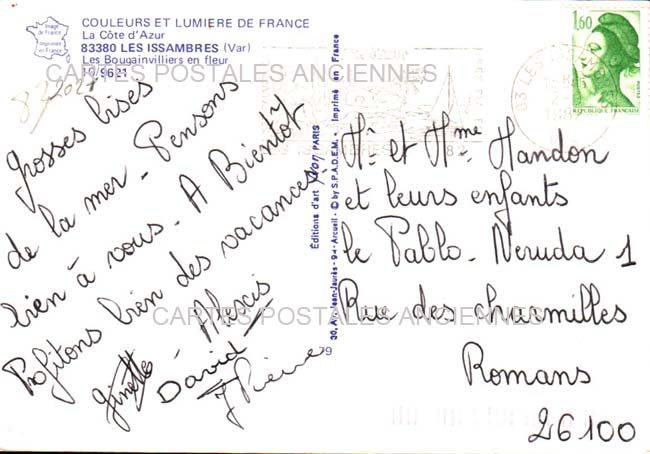 COULEURS ET LUMIERE DE FRANCE
La Côte d'Azur
83380 LES ISSAMBRES (Var)
Les Bougainvilliers en fleur
10/9621
Image de France
Imprimée en France
CARTES POSTALES ANCIENNES
grosses bises
de la mer. Pensons
bien à vous. A Bientôt
Profitons bien des vacances
Ginette - Alexis
David
J Pierre
Editions d'art yvon PARIS
30, Av. Jean-Jaurès - 94 - Arcueil - © by S.P.A.D.E.M. - Imprimé en France
79
1,60
REPUBLIQUE FRANÇAISE
83 LES
Mr et Mme Handon
et leurs enfants
le Pablo-Neruda 1
Rue des charmilles
Romans
26100
CARTES POSTALES ANCIENNES